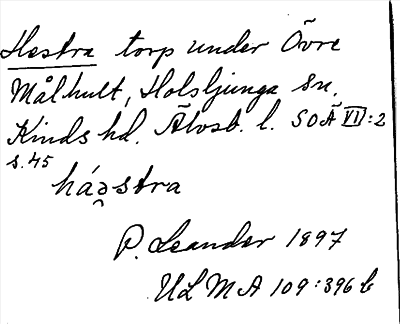 Hestra torp under Övre
Målhult, Holsljunga sn.
Kinds hd. Älvsb. l. SOÄ VII:2
s.45
háəstra
P. Leander 1897
ULMA 109:396 b